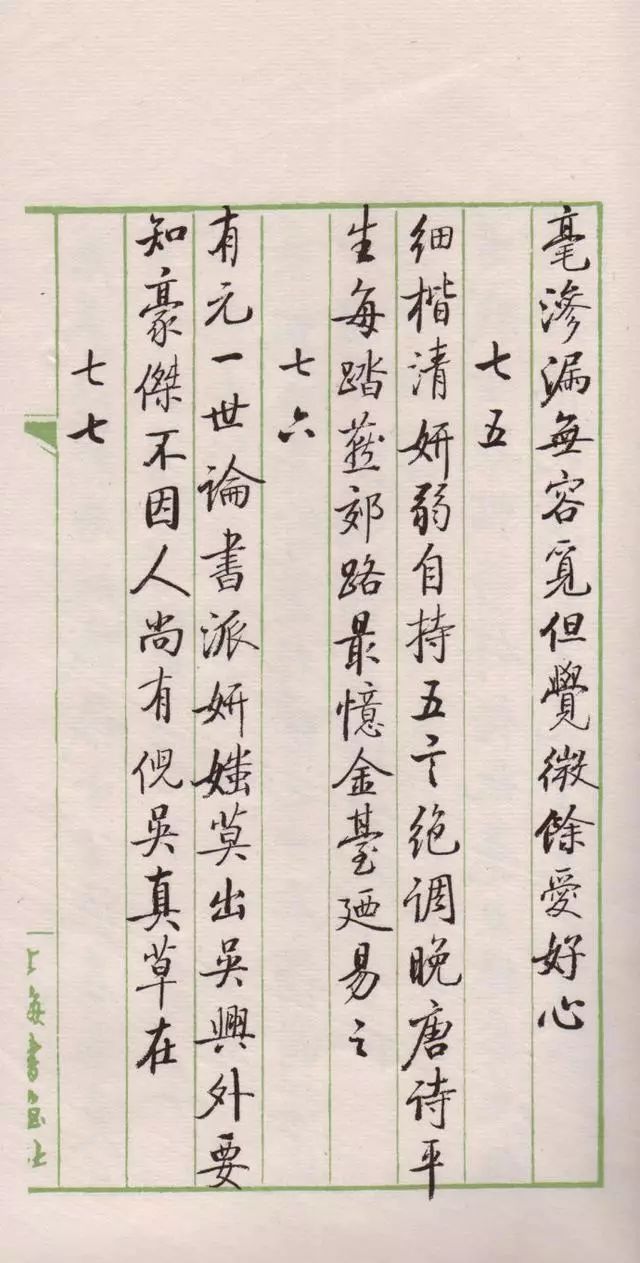 毫滲漏無容覓但覺微餘愛好心
七五
細楷清妍弱自持五言絶調晚唐詩平
生每踏燕郊路最憶金臺廼易之
七六
有元一世論書派妍媸莫出吳興外要
知豪傑不因人尚有倪吳真草在
七七
上海書畫社